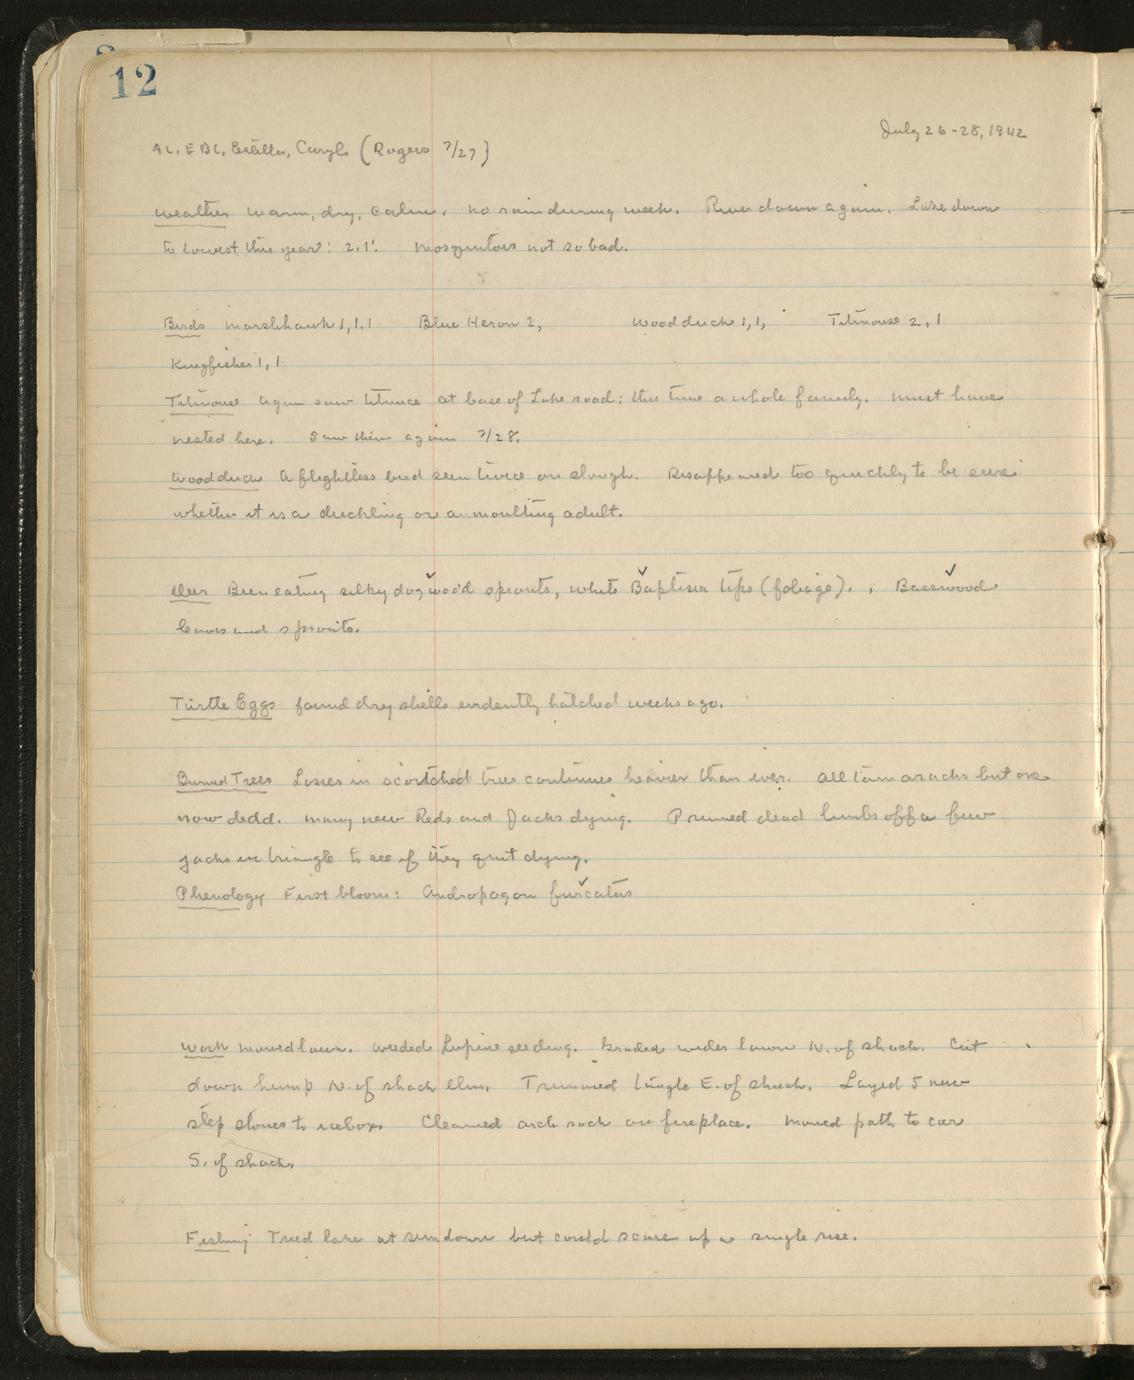 12
July 26-28, 1942
AL, EBL, Estella, Caryl (Rogers 7/27)
Weather warm, dry, calm. No rain during week. River down again. Lake down
to lowest this year: 2.1'. Mosquitoes not so bad.
Birds Marshhawk 1,1,1 Blue Heron 2, Woodduck 1,1, Titmouse 2,1
Kingfisher 1,1
Titmouse Again saw titmice at base of Lake road; this time a whole family. Must have
nested here. Saw them again 7/28.
Woodduck A flightless bird seen twice on slough. Disappeared too quickly to be sure
whether it is a duckling or a moulting adult.
Deer Been eating silky dogwood sprouts, white Baptisia tips (foliage). ; Basswood
leaves and sprouts.
Turtle Eggs found dry shells evidently hatched weeks ago.
Burned Trees Losses in scortched trees continues heavier than ever. All tamaracks but one
now dedd. Many new Reds and Jacks dying. Pruned dead limbs off a few
jacks in triangle to see if they quit dying.
Phenology First bloom: Andropogon furcatus
Work mowed lawn. Weeded Lupine seeding. Graded wider lawn N. of shack. Cut
down hump N. of shack elm. Trimmed tangle E. of shack. Layed 5 new
step stones to icebox. Cleaned arch rock on fireplace. Mowed path to car
S. of shack.
Fishing Tried lake at sundown but could scare up a single rise.